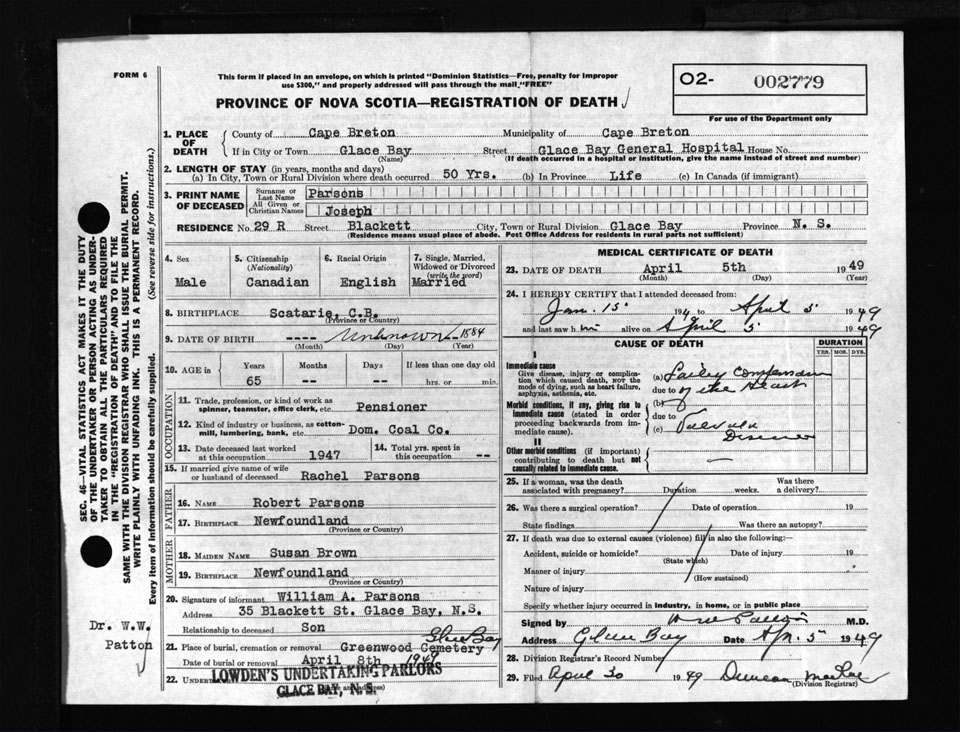 FORM 6
This form if placed in an envelope, on which is printed "Dominion Statistics—Free, penalty for improper
use $300," and properly addressed will pass through the mail "FREE"
O2- 002779
For use of the Department only
PROVINCE OF NOVA SCOTIA—REGISTRATION OF DEATH
1. PLACE OF DEATH
County of Cape Breton Municipality of Cape Breton
If in City or Town Glace Bay Street Glace Bay General Hospital House No.
(Name) (If death occurred in a hospital or institution, give the name instead of street and number)
2. LENGTH OF STAY (in years, months and days)
(a) In City, Town or Rural Division where death occurred 50 Yrs. (b) In Province Life (c) In Canada (if immigrant)
3. PRINT NAME OF DECEASED
Surname or Last Name Parsons
All Given or Christian Names Joseph
RESIDENCE No. 29 R Street Blackett City, Town or Rural Division Glace Bay Province N. S.
(Residence means usual place of abode. Post Office Address for residents in rural parts not sufficient)
4. Sex
Male
5. Citizenship
(Nationality)
Canadian
6. Racial Origin
English
7. Single, Married, Widowed or Divorced
(write the word)
Married
8. BIRTHPLACE Scatarie, C.B.
(Province or Country)
9. DATE OF BIRTH ---- Unknown -- 1884
(Month) (Day) (Year)
10. AGE in
Years Months Days If less than one day old
65 -- -- hrs. or min.
OCCUPATION
11. Trade, profession, or kind of work as
spinner, teamster, office clerk, etc. Pensioner
12. Kind of industry or business, as cotton-
mill, lumbering, bank, etc. Dom. Coal Co.
13. Date deceased last worked
at this occupation 1947
14. Total yrs. spent in
this occupation --
15. If married give name of wife
or husband of deceased Rachel Parsons
FATHER
16. NAME Robert Parsons
17. BIRTHPLACE Newfoundland
(Province or Country)
MOTHER
18. MAIDEN NAME Susan Brown
19. BIRTHPLACE Newfoundland
(Province or Country)
20. Signature of informant William A. Parsons
Address 35 Blackett St. Glace Bay, N.S.
Relationship to deceased Son
21. Place of burial, cremation or removal Greenwood Cemetery Glace Bay
Date of burial or removal April 8th 1949
22. UNDERTAKER LOWDEN'S UNDERTAKING PARLORS
GLACE BAY, N. S.
MEDICAL CERTIFICATE OF DEATH
23. DATE OF DEATH April 5th 1949
(Month) (Day) (Year)
24. I HEREBY CERTIFY that I attended deceased from:
Jan. 15 194 to April 5 1949
and last saw him alive on April 5 1949
CAUSE OF DEATH DURATION
YRS. MOS. DYS.
I
Immediate cause
Give disease, injury or complication which caused death, NOT the mode of dying, such as heart failure, asphyxia, asthenia, etc.
(a)
due to of the Heart
Morbid conditions, if any, giving rise to immediate cause (stated in order proceeding backwards from immediate cause).
(b)
due to
(c)
II
Other morbid conditions (if important) contributing to death but not causally related to immediate cause.
25. If a woman, was the death
associated with pregnancy? Duration weeks. Was there
a delivery?
26. Was there a surgical operation? Date of operation 19
State findings Was there an autopsy?
27. If death was due to external causes (violence) fill in also the following:—
Accident, suicide or homicide? Date of injury 19
(State which)
Manner of injury
(How sustained)
Nature of injury
Specify whether injury occurred in industry, in home, or in public place
Signed by M.D.
Address Glace Bay Date Apr. 5 1949
28. Division Registrar's Record Number
29. Filed April 30 1949 Duncan
(Division Registrar)
SEC. 46—VITAL STATISTICS ACT MAKES IT THE DUTY
OF THE UNDERTAKER OR PERSON ACTING AS UNDER-
TAKER TO OBTAIN ALL THE PARTICULARS REQUIRED
IN THE "REGISTRATION OF DEATH" AND TO FILE THE
SAME WITH THE DIVISION REGISTRAR WHO SHALL ISSUE THE BURIAL PERMIT.
WRITE PLAINLY WITH UNFADING INK. THIS IS A PERMANENT RECORD.
Every item of information should be carefully supplied. (See reverse side for instructions.)
Dr. W.W.
Patton